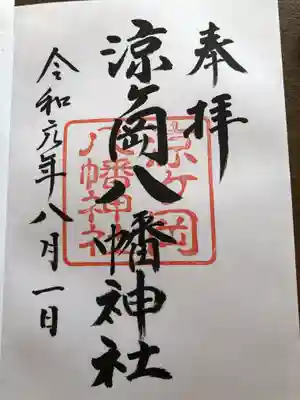 奉拝
涼ヶ岡八幡神社
涼ヶ岡
八幡神社
令和元年八月一日